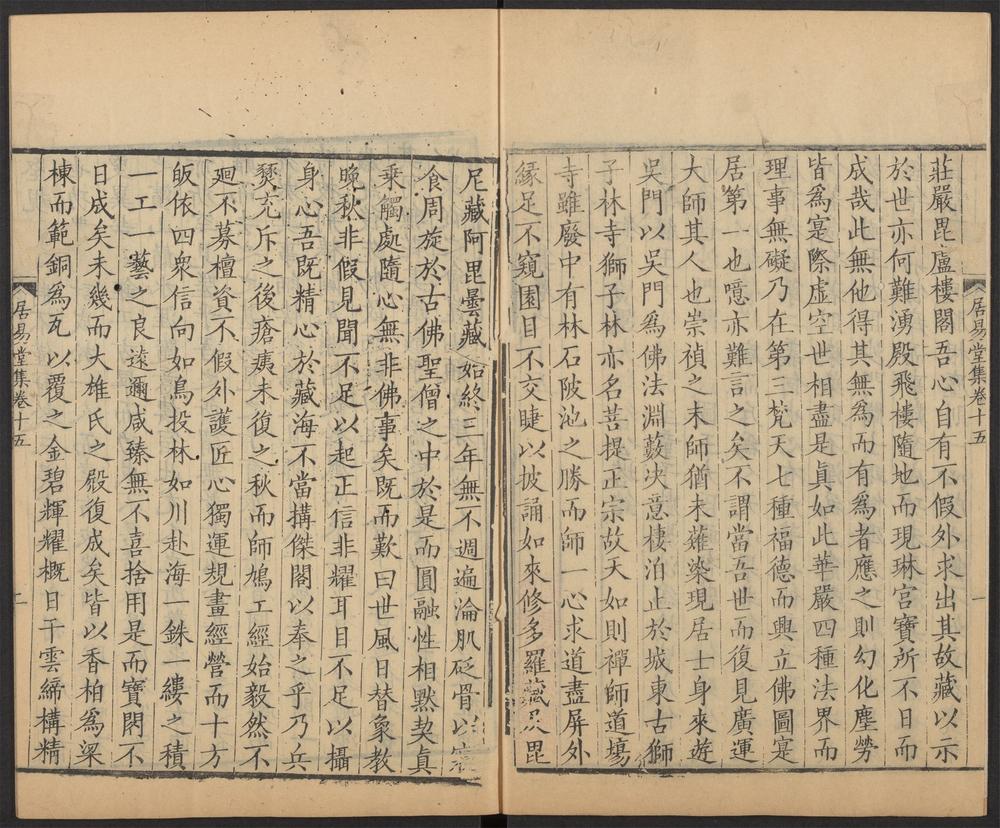 莊嚴毘盧樓閣吾心自有不假外求出其故藏以示
於世亦何難湧殿飛樓隨地而現琳宫寶所不日而
成哉此無他得其無為而有為者應之則幻化塵勞
皆為寔際虛空世相盡是真如此華嚴四種法界而
理事無礙乃在第三梵天七種福德而興立佛圖寔
居第一也噫亦難言之矣不謂當吾世而復見廣運
大師其人也崇禎之末師猶未薙染現居士身來遊
吳門以吳門為佛法淵藪決意棲泊止於城東古獅
子林寺獅子林亦名菩提正宗故天如則禪師道塲
寺雖廢中有林石陂池之勝而師一心求道盡屏外
緣足不窺園目不交睫以披誦如來修多羅藏及毘
居易堂集卷十五
一
尼藏阿毘曇藏始終三年無不週遍淪肌砭骨以寢
食周旋於古佛聖僧之中於是而圓融性相黙契真
乗觸處隨心無非佛事矣既而歎曰世風日替象教
晚秋非假見聞不足以起正信非耀耳目不足以攝
身心吾既精心於藏海不當搆傑閣以奉之乎乃兵
燹充斥之後瘡痍未復之秋而師鳩工經始毅然不
廻不募檀資不假外䕶匠心獨運規畫經營而十方
皈依四衆信向如鳥投林如川赴海一銖一縷之積
一工一藝之良遠邇咸臻無不喜捨用是而寶閣不
日成矣未幾而大雄氏之殿復成矣皆以香柏為梁
棟而範銅為瓦以覆之金碧輝耀概日干雲締構精
居易堂集卷十五